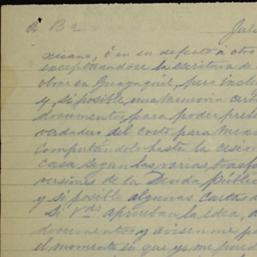 Jul
xicano, ó en su defecto á otro
exceptuandose la escritura de
obras en Guayaquil, pues incl
y, si posible, una memoria cert
documentos para poder pret
verdadero del costo para Mexi
Computandolo hasta la cesión
casa segun las varias transf
versiones de la Deuda públic
y si posible algunas cartas a
Si Vds aprueban la idea, d
documentos y avisenme p
el momento en que yo me pued